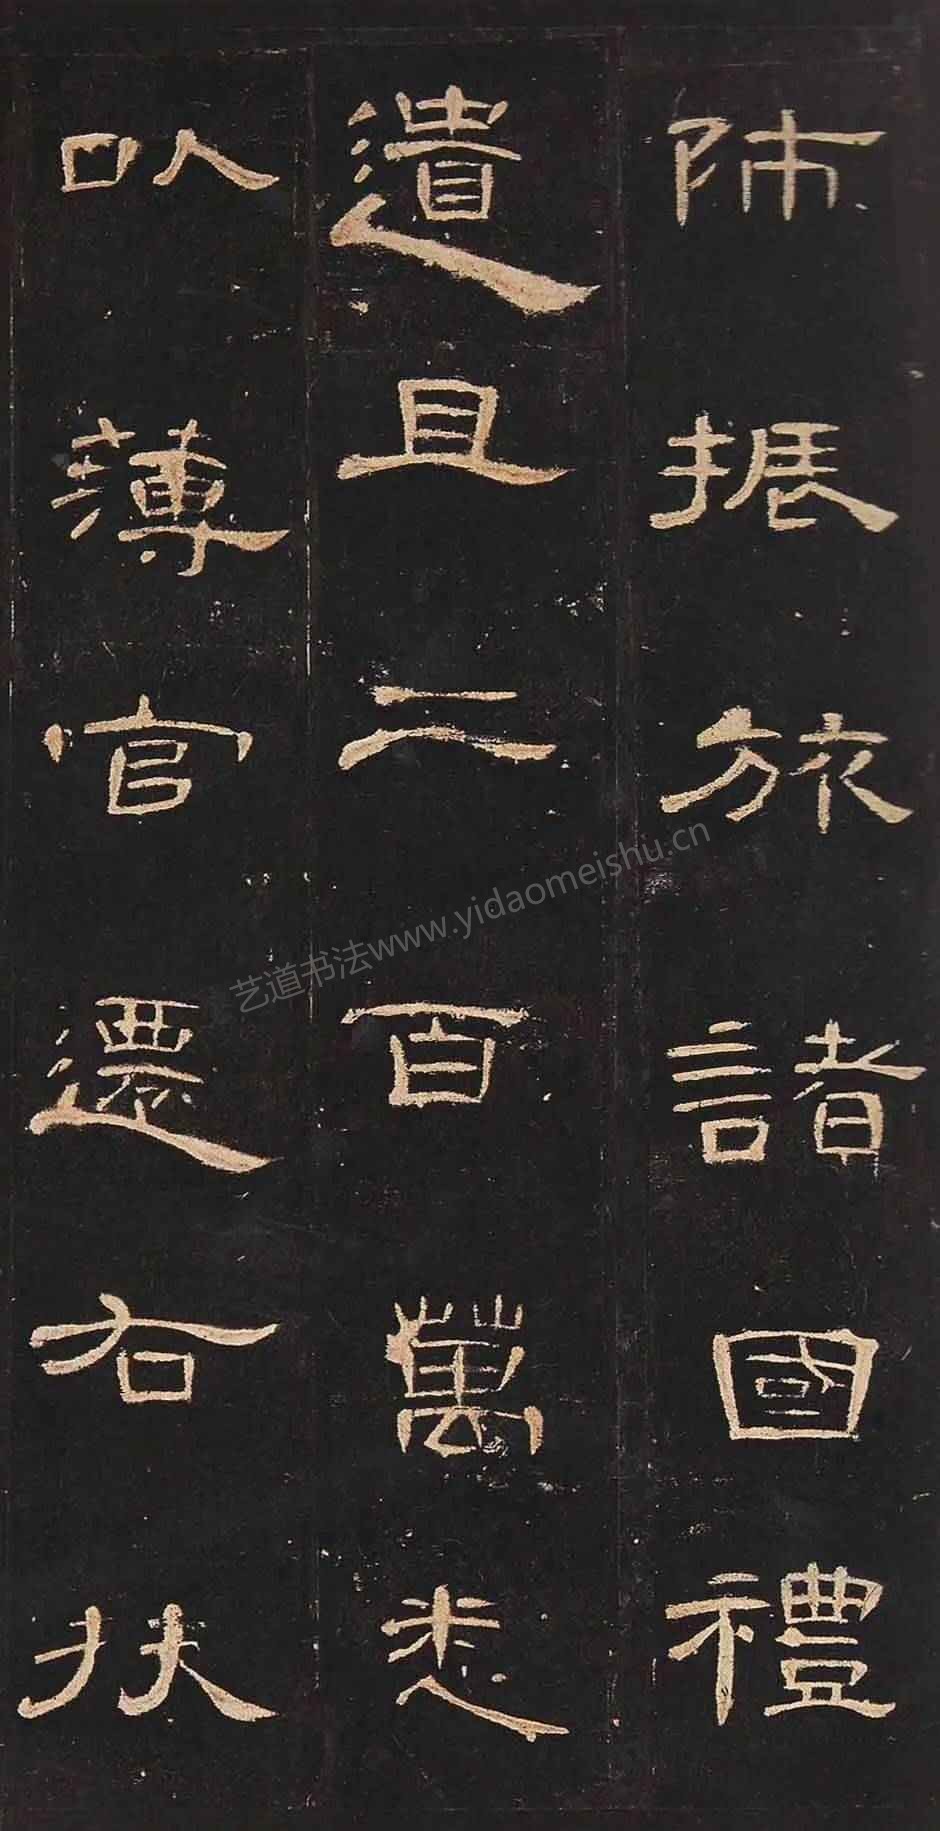 師振旅諸國禮
遺且二百萬悉
以薄官遷右扶
艺道书法www.yidaomeishu.cn